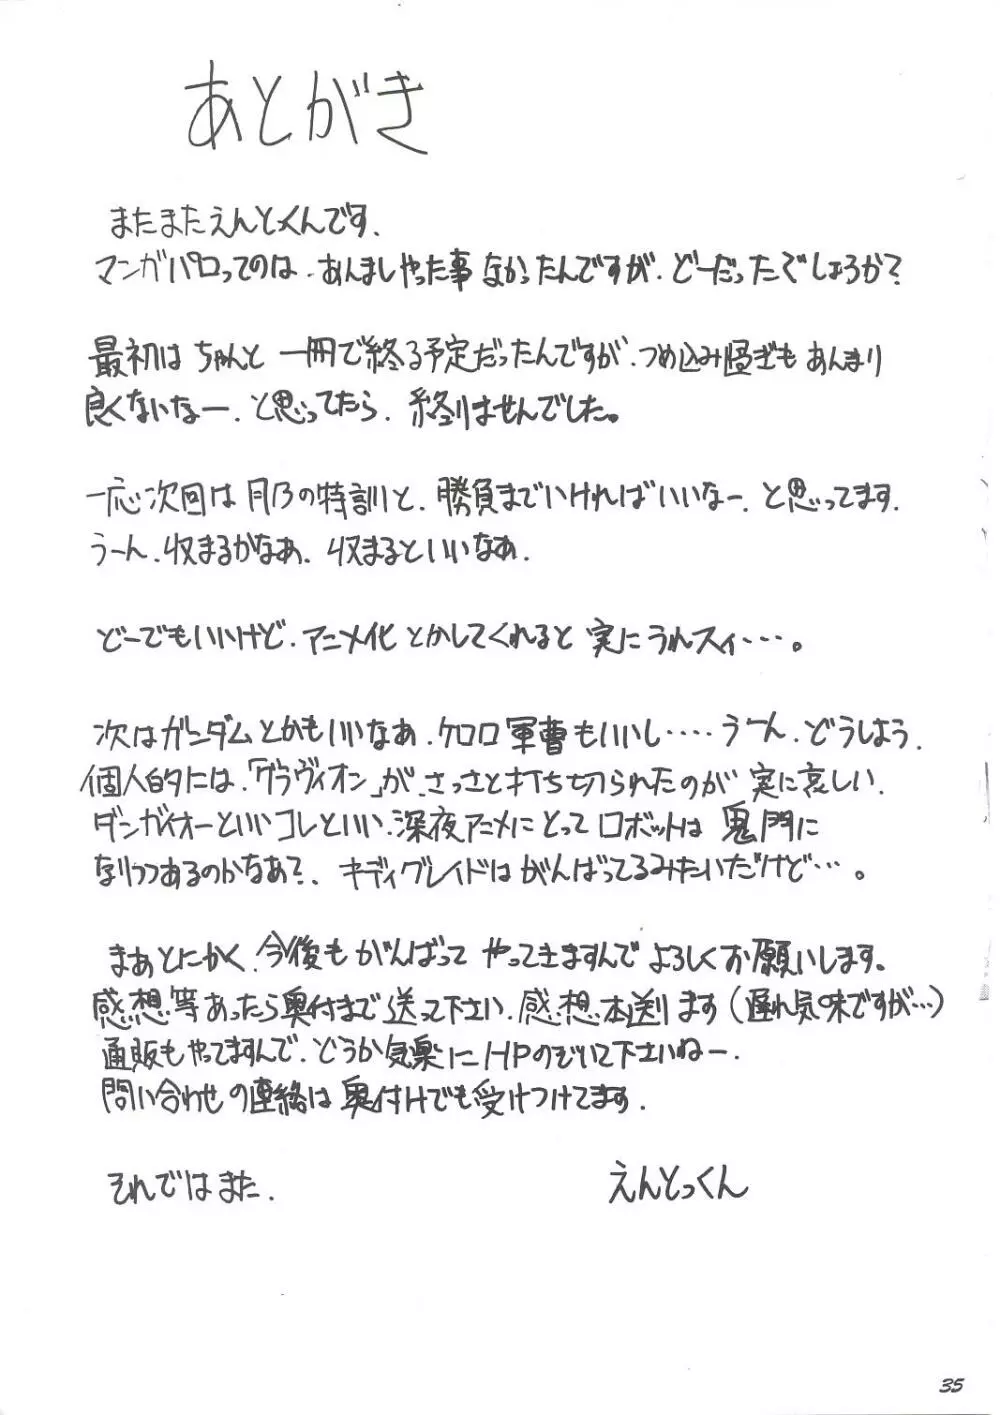 あとがき
またまたえんとくんです.
マンガパロってのは.あんましやった事なかったんですが.どーだったでしょうか?
最初はちゃんと一冊で終る予定だったんですが.つめ込み過ぎもあんまり
良くないなー.と思ってたら.終りませんでした。
一応次回は月乃の特訓と.勝負までいければいいなー.と思ってます.
うーん.収まるかなあ.収まるといいなあ.
どーでもいいけど.アニメ化とかしてくれると実にうれスィ････。
次はガンダムとかもいいなあ.ケロロ軍曹もいいし････うーん.どうしよう.
個人的には.「グラヴィオン」が.さっさと打ち切られたのが実に哀しい.
ダンガイオーといいコレといい.深夜アニメにとってロボットは鬼門に
なりつつあるのかなあ?.キディグレイドはがんばってるみたいだけど･･･。
まあとにかく.今後もがんばってやってきますんでよろしくお願いします。
感想等あったら奥付まで送って下さい.感想本送ります(遅れ気味ですが…)
通販もやってますんで.どうか気楽にHPのぞいて下さいねー.
問い合わせの連絡は奥付けでも受けつけてます.
それではまた.
えんとっくん
35